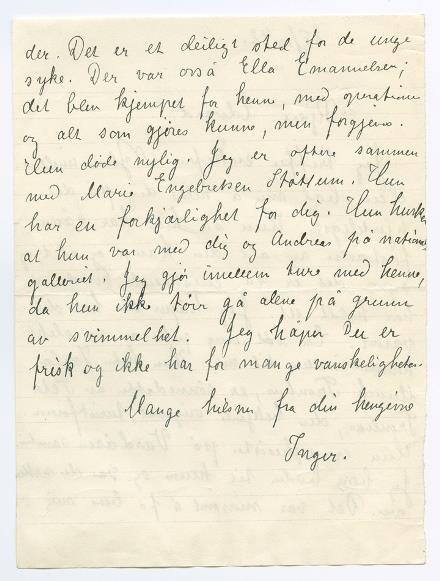 der. Det er et deiligt sted for de unge
syke. Der var også Ella Emanuelsen;
det blev kjempet for henne, med operation
og alt som gjøres kunne, men forgjeves.
Hun døde nylig. Jeg er oftere sammen
med Marie Engebretsen Hun
har en forkjærlighet for dig. Hun husker
at hun var med dig og Andreas på national
galleriet. Jeg gjør imellem ture med henne,
da hun ikke tør gå alene på grunn
av svimmelhet. Jeg håper Du er
frisk og ikke har for mange vanskeligheter.
Mange hilsner fra din hengivne
Inger.